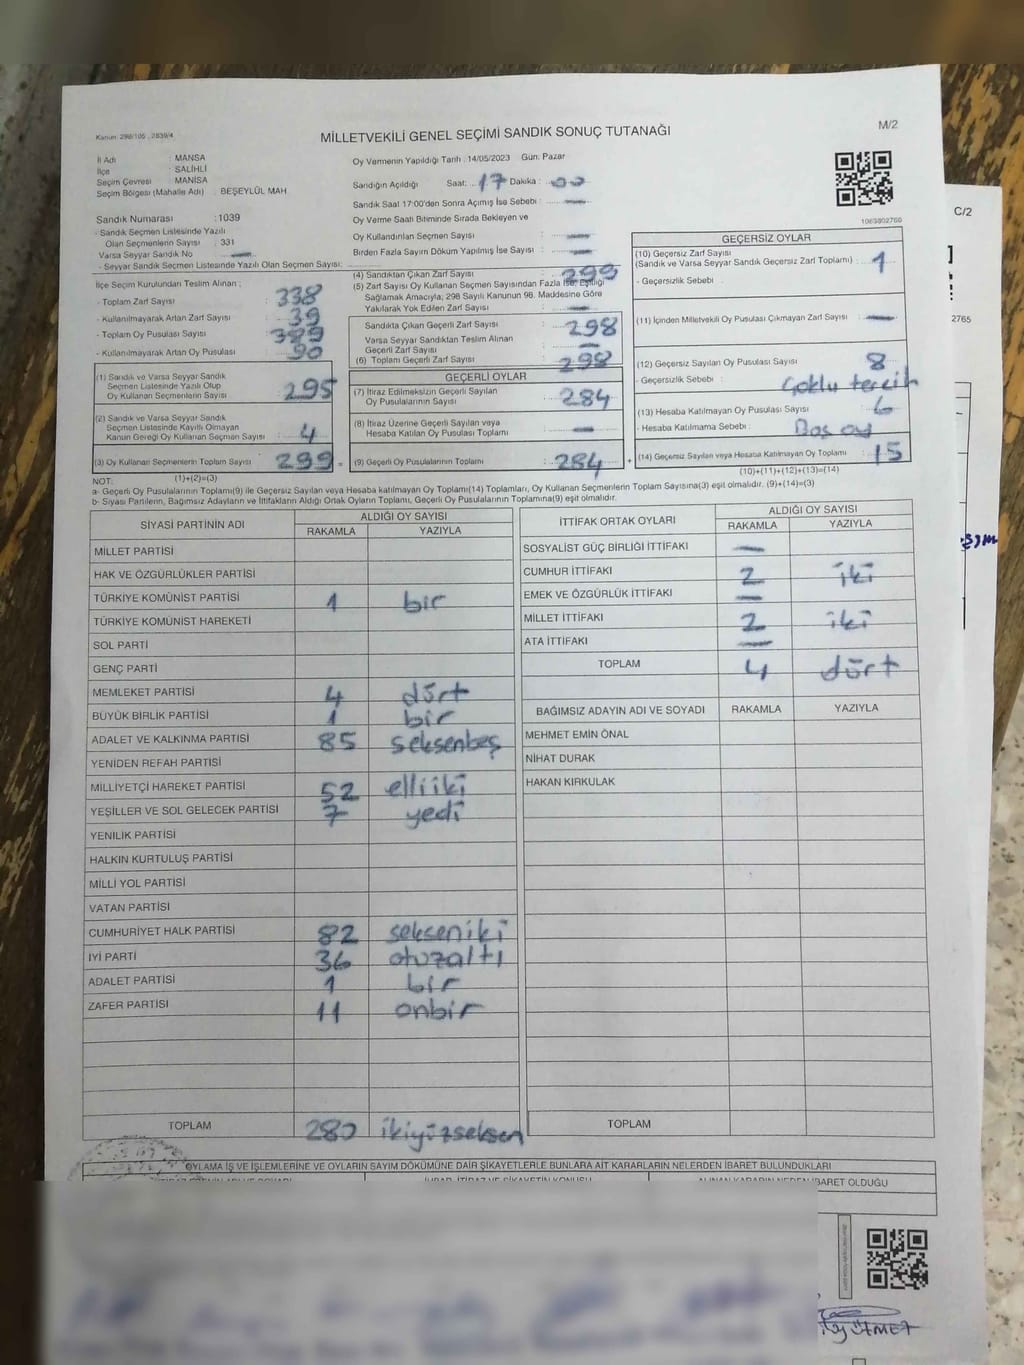 Kanun: 298/105, 2839/4
MİLLETVEKİLİ GENEL SEÇİMİ SANDIK SONUÇ TUTANAĞI
M/2
İl Adı : MANSA
İlçe : SALİHLİ
Seçim Çevresi : MANİSA
Seçim Bölgesi (Mahalle Adı) : BEŞEYLÜL MAH.
Sandık Numarası : 1039
- Sandık Seçmen Listesinde Yazılı
Olan Seçmenlerin Sayısı : 331
Varsa Seyyar Sandık No —
- Seyyar Sandık Seçmen Listesinde Yazılı Olan Seçmen Sayısı:
İlçe Seçim Kurulundan Teslim Alınan ;
- Toplam Zarf Sayısı : 338
- Kullanılmayarak Artan Zarf Sayısı : 39
- Toplam Oy Pusulası Sayısı : 389
- Kullanılmayarak Artan Oy Pusulası : 90
(1) Sandık ve Varsa Seyyar Sandık
Seçmen Listesinde Yazılı Olup
Oy Kullanan Seçmenlerin Sayısı : 295
(2) Sandık ve Varsa Seyyar Sandık
Seçmen Listesinde Kayıtlı Olmayan
Kanun Gereği Oy Kullanan Seçmen Sayısı : 4
(3) Oy Kullanan Seçmenlerin Toplam Sayısı : 299
(1)+(2)=(3)
Oy Vermenin Yapıldığı Tarih : 14/05/2023 Gün: Pazar
Sandığın Açıldığı Saat: 17 Dakika : 00
Sandık Saat 17:00'den Sonra Açılmış İse Sebebi : —
Oy Verme Saati Bitiminde Sırada Bekleyen ve
Oy Kullandırılan Seçmen Sayısı : —
Birden Fazla Sayım Döküm Yapılmış İse Sayısı : —
(4) Sandıktan Çıkan Zarf Sayısı : 299
(5) Zarf Sayısı Oy Kullanan Seçmen Sayısından Fazla İse, Eşitliği
Sağlamak Amacıyla, 298 Sayılı Kanunun 98. Maddesine Göre
Yakılarak Yok Edilen Zarf Sayısı : —
Sandıkta Çıkan Geçerli Zarf Sayısı : 298
Varsa Seyyar Sandıktan Teslim Alınan
Geçerli Zarf Sayısı : —
(6) Toplam Geçerli Zarf Sayısı : 298
GEÇERLİ OYLAR
(7) İtiraz Edilmeksizin Geçerli Sayılan
Oy Pusulalarının Sayısı : 284
(8) İtiraz Üzerine Geçerli Sayılan veya
Hesaba Katılan Oy Pusulası Toplamı : —
(9) Geçerli Oy Pusulalarının Toplamı : 284
1083802760
GEÇERSİZ OYLAR
(10) Geçersiz Zarf Sayısı
(Sandık ve Varsa Seyyar Sandık Geçersiz Zarf Toplamı) : 1
- Geçersizlik Sebebi :
(11) İçinden Milletvekili Oy Pusulası Çıkmayan Zarf Sayısı : —
(12) Geçersiz Sayılan Oy Pusulası Sayısı : 8
- Geçersizlik Sebebi : Çoklu tercih
(13) Hesaba Katılmayan Oy Pusulası Sayısı : 6
- Hesaba Katılmama Sebebi : Boş oy
(14) Geçersiz Sayılan veya Hesaba Katılmayan Oy Toplamı : 15
(10)+(11)+(12)+(13)=(14)
NOT:
a- Geçerli Oy Pusulalarının Toplamı(9) ile Geçersiz Sayılan veya Hesaba katılmayan Oy Toplamı(14) Toplamları, Oy Kullanan Seçmenlerin Toplam Sayısına(3) eşit olmalıdır. (9)+(14)=(3)
b- Siyasi Partilerin, Bağımsız Adayların ve İttifakların Aldığı Ortak Oyların Toplamı, Geçerli Oy Pusulalarının Toplamına(9) eşit olmalıdır.
SİYASİ PARTİNİN ADI ALDIĞI OY SAYISI
RAKAMLA YAZIYLA
MİLLET PARTİSİ
HAK VE ÖZGÜRLÜKLER PARTİSİ
TÜRKİYE KOMÜNİST PARTİSİ 1 bir
TÜRKİYE KOMÜNİST HAREKETİ
SOL PARTİ
GENÇ PARTİ
MEMLEKET PARTİSİ 4 dört
BÜYÜK BİRLİK PARTİSİ 1 bir
ADALET VE KALKINMA PARTİSİ 85 seksenbeş
YENİDEN REFAH PARTİSİ
MİLLİYETÇİ HAREKET PARTİSİ 52 elliiki
YEŞİLLER VE SOL GELECEK PARTİSİ 7 yedi
YENİLİK PARTİSİ
HALKIN KURTULUŞ PARTİSİ
MİLLİ YOL PARTİSİ
VATAN PARTİSİ
CUMHURİYET HALK PARTİSİ 82 sekseniki
İYİ PARTİ 36 otuzaltı
ADALET PARTİSİ 1 bir
ZAFER PARTİSİ 11 onbir
TOPLAM 280 ikiyüzseksen
İTTİFAK ORTAK OYLARI ALDIĞI OY SAYISI
RAKAMLA YAZIYLA
SOSYALİST GÜÇ BİRLİĞİ İTTİFAKI —
CUMHUR İTTİFAKI 2 iki
EMEK VE ÖZGÜRLÜK İTTİFAKI —
MİLLET İTTİFAKI 2 iki
ATA İTTİFAKI —
TOPLAM 4 dört
BAĞIMSIZ ADAYIN ADI VE SOYADI RAKAMLA YAZIYLA
MEHMET EMİN ÖNAL
NİHAT DURAK
HAKAN KIRKULAK
TOPLAM
OYLAMA İŞ VE İŞLEMLERİNE VE OYLARIN SAYIM DÖKÜMÜNE DAİR ŞİKAYETLERLE BUNLARA AİT KARARLARIN NELERDEN İBARET BULUNDUKLARI
İHBAR, İTİRAZ VE ŞİKAYETİN KONUSU
ALINAN KARARIN NEDEN İBARET OLDUĞU
C/2
2765